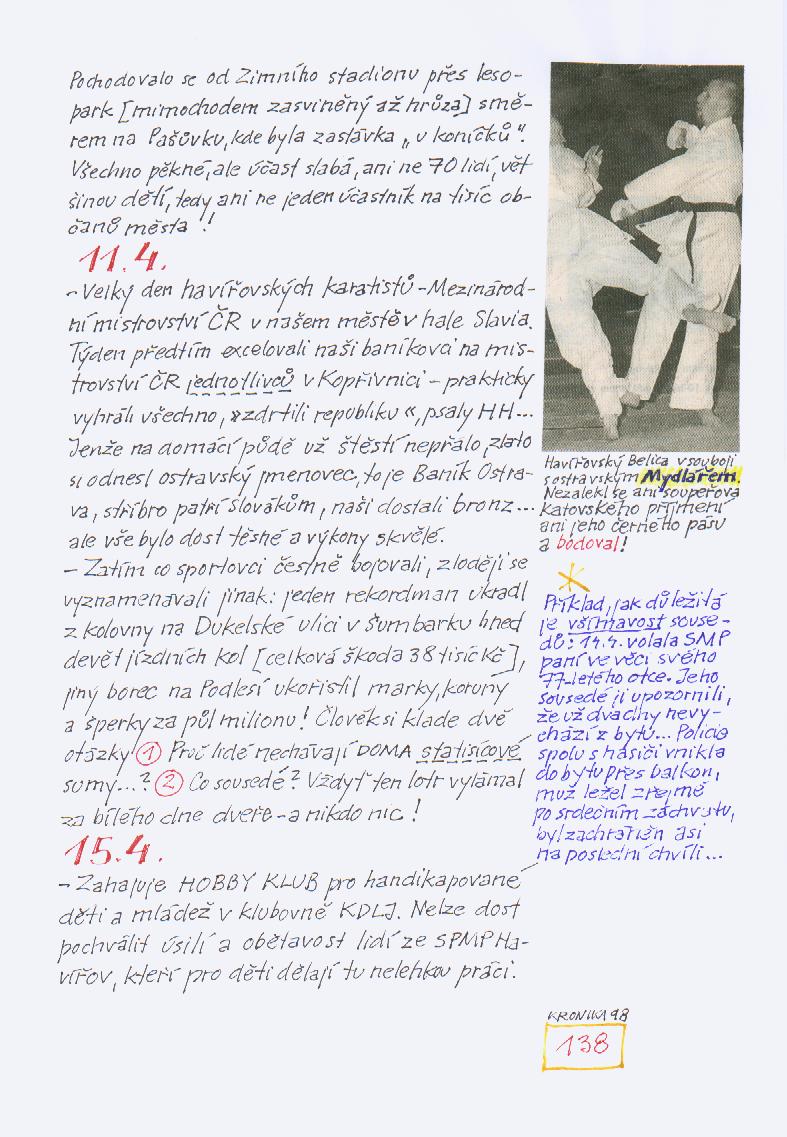 Pochodovalo se od Zimního stadionu přes leso-
park [mimochodem zasviněný až hrůza] smě-
rem na Pašůvku, kde byla zastávka „u koníčků".
Všechno pěkné, ale účast slabá, ani ne 70 lidí, vět
šinou dětí, tedy ani ne jeden účastník na tisíc ob-
čanů města!
11.4.
- Velký den havířovských karatistů - Mezinárod-
ní mistrovství ČR v našem městě v hale Slavia.
Týden předtím excelovali naši baníkovci na mis-
trovství ČR jednotlivců v Kopřivnici - prakticky
vyhráli všechno, »zdrtili republiku«, psaly HH...
Jenže na domácí půdě už štěstí nepřálo, zlato
si odnesl ostravský jmenovec, to je Baník Ostra-
va, stříbro patří Slovákům, naši dostali bronz...
ale vše bylo dost těsné a výkony skvělé.
- Zatím co sportovci čestně bojovali, zloději se
vyznamenávali jinak: jeden rekordman ukradl
z kolovny na Dukelské ulici v Šumbarku hned
devět jízdních kol [celková škoda 38 tisíc Kč],
jiný borec na Podlesí ukořistil marky, koruny
a šperky za půl milionu! Člověk si klade dvě
otázky ① Proč lidé nechávají DOMA statisícové
sumy...? ② Co sousedé? Vždyť ten lotr vylámal
za bílého dne dveře - a nikdo nic!
15.4.
- Zahajuje HOBBY KLUB pro handikapované
děti a mládež v klubovně KDLJ. Nelze dost
pochválit úsilí a obětavost lidí ze SPMP Ha-
vířov, kteří pro děti dělají tu nelehkou práci.
Havířovský Belica v souboji
s ostravským Mydlářem.
Nezalekl se ani soupeřova
katovského příjmení
ani jeho černého pásu
a bodoval!
Příklad, jak důležitá
je všímavost souse-
dů: 14.4. volala SMP
paní ve věci svého
77-letého otce. Jeho
sousedé ji upozornili,
že už dva dny nevy-
chází z bytu... Policie
spolu s hasiči vnikla
do bytu přes balkon,
muž ležel zřejmě
po srdečním záchvatu,
byl zachráněn asi
na poslední chvíli...
KRONIKA 98
138